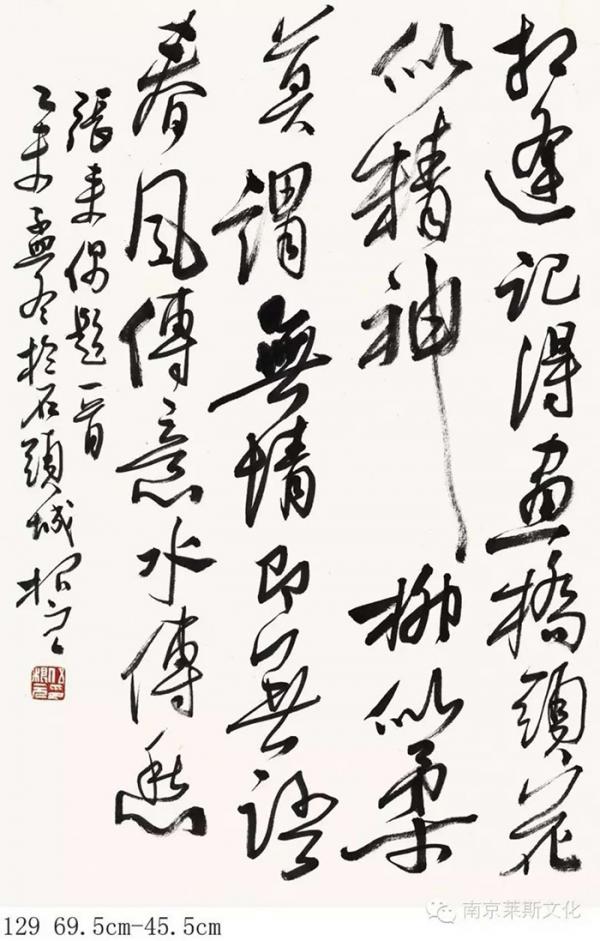 相逢記得畫橋頭花
似精神柳似柔
莫謂無情即無語
春風傳意水傳愁
張耒偶題一首
乙未孟冬於石頭城
南京莱斯文化
129 69.5cm-45.5cm